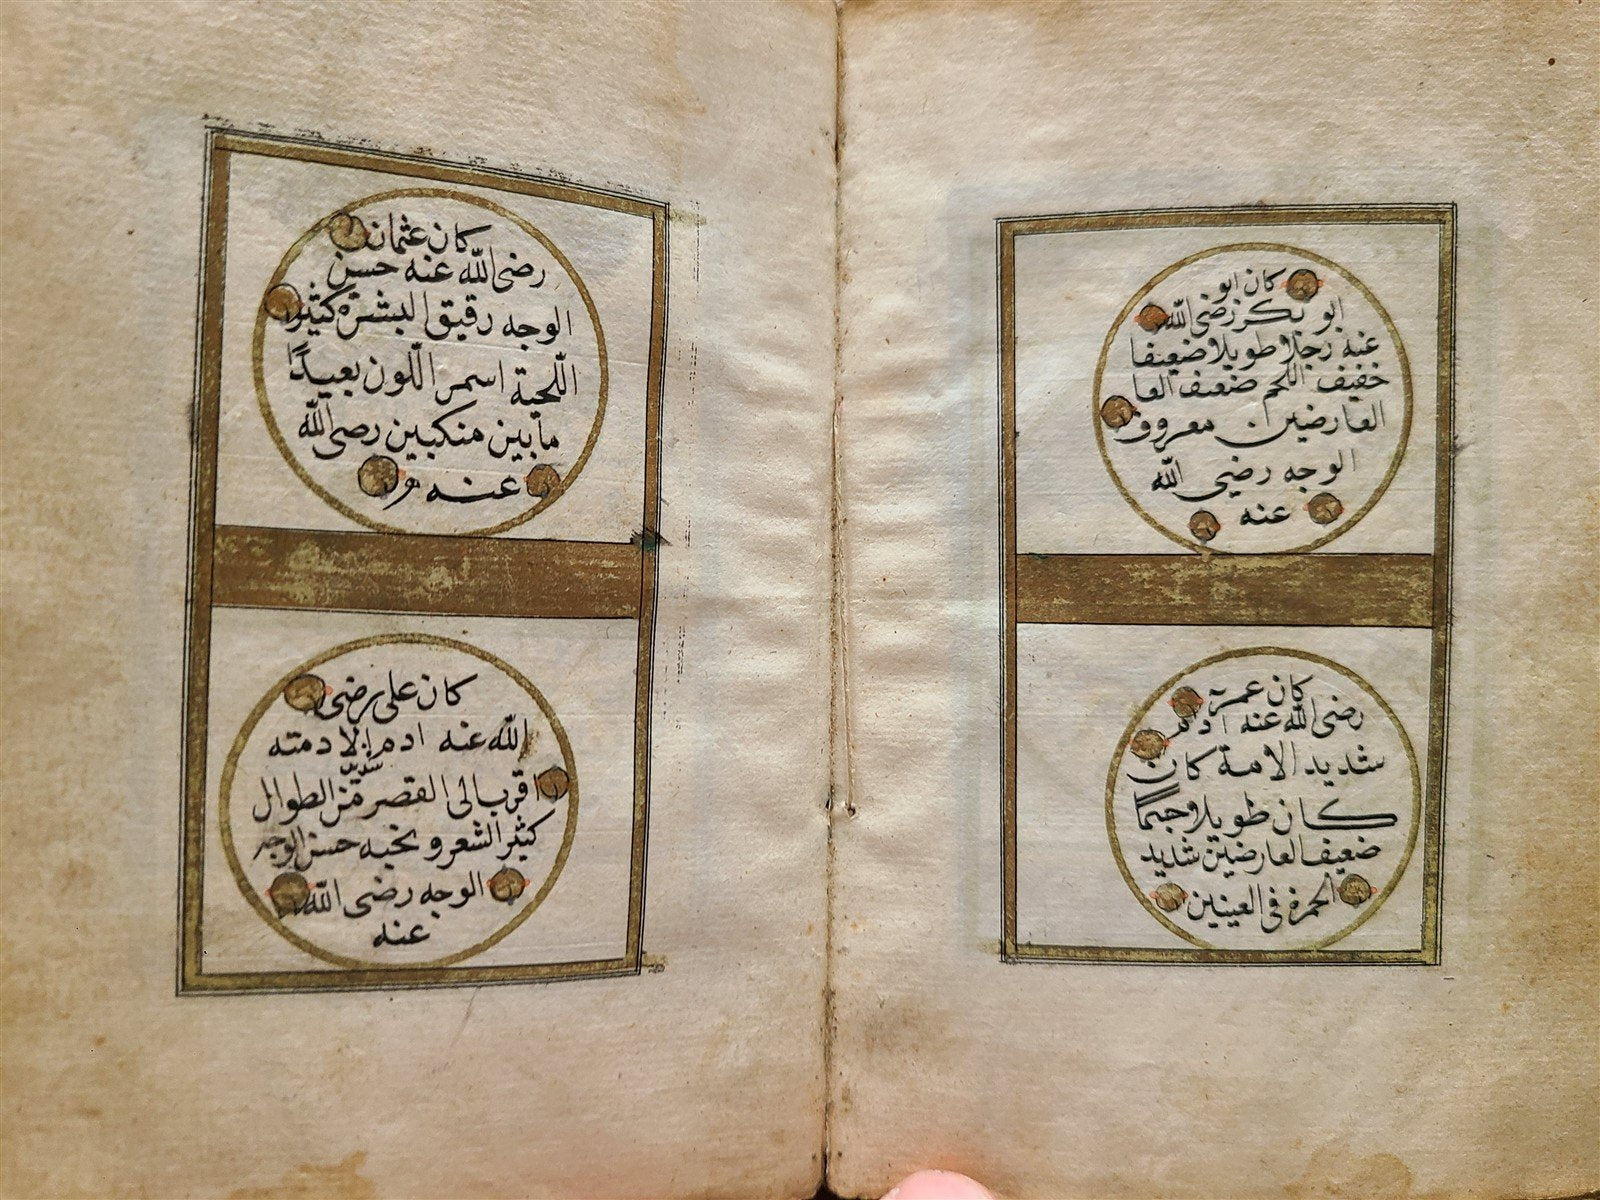 كان ابو
ابو بكر رضى الله
عنه رجلا طويلا ضعيفا
خفيف اللحم ضعيف العا
العارضين معروف
الوجه رضي الله
عنه
كان عمر
رضى الله عنه ادم
شديد الامة كان
كان طويلا جسما
ضعيف العارضين شديد
الحمرة فى العينين
كان عثمان
رضى الله عنه حسن
الوجه رقيق البشرة كثير
اللّحية اسمر اللّون بعيدًا
ما بين منكبين رضى الله
عنه
كان على رضى
الله عنه ادم الادمته
شديد
اقرب الى القصر من الطوال
كثير الشعر و لحيه حسن الوجه
الوجه رضى الله
عنه